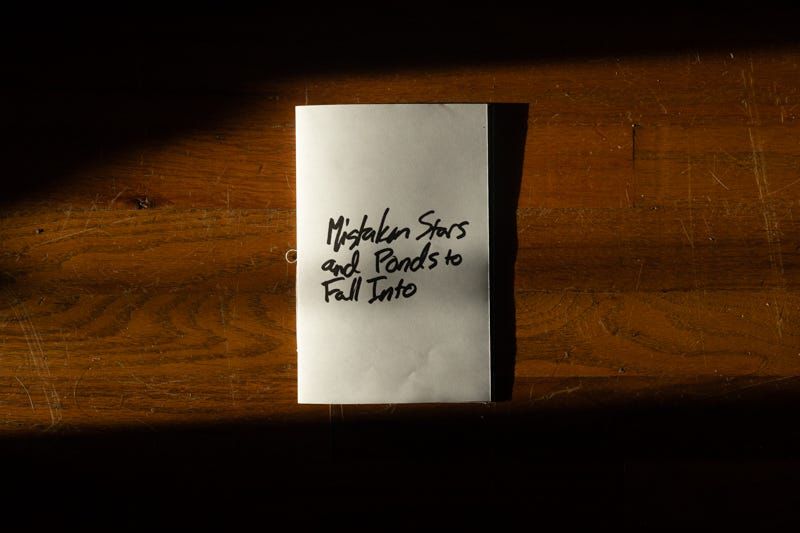 Mistaken Stars
and Ponds to
Fall Into